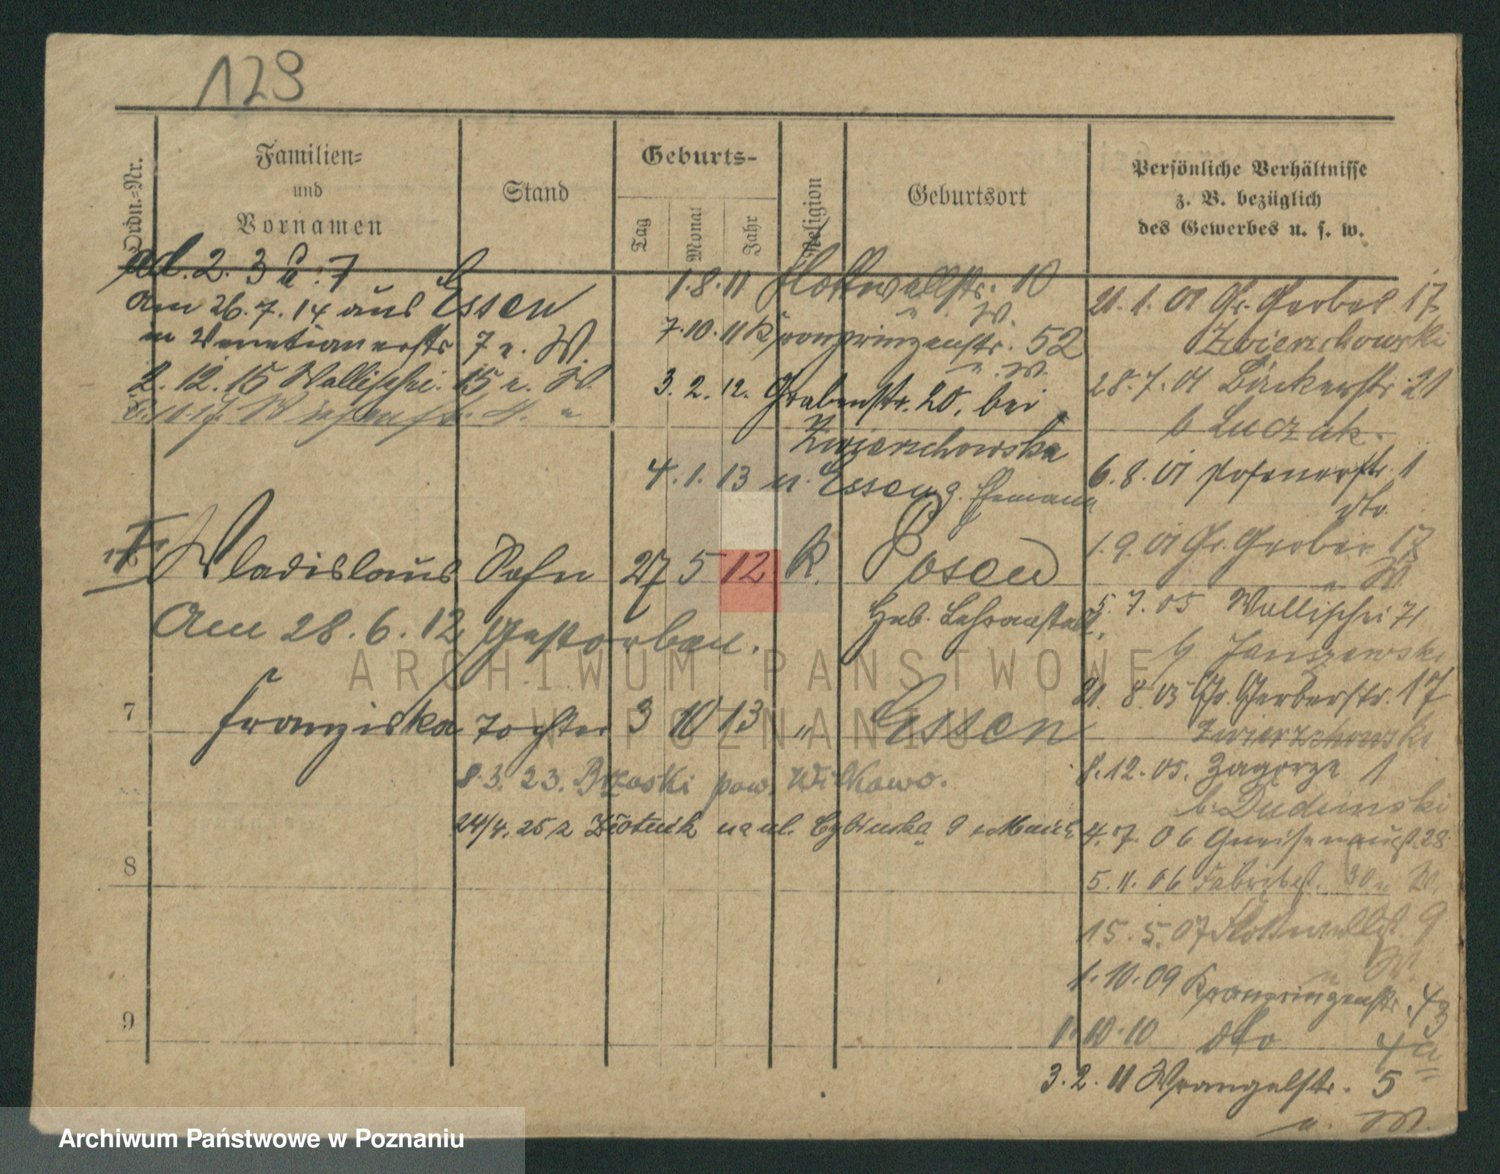 129
Ordn.-Nr.
Familien-
und
Vornamen
Stand
Geburts-
Tag
Monat
Jahr
Religion
Geburtsort
Persönliche Verhältnisse
z. B. bezüglich
des Gewerbes u. s. w.
ad. 2. 3 u. 7
Am 26.7.14 aus Essen
n Venetianerstr 7 e. W.
2.12.15 Wallischei 15 e. W.
1.8.11 Flottwellstr. 10
u. W.
7.10.11 Kronprinzenstr. 52
u. W.
3.2.12. Grabenstr. 20, bei
Zwierzchowska
4.1.13 n. Essen z. Ehemann
6 Wladislaus Sohn 27 5 12 K. Posen
Heb. Lehranstalt.
Am 28.6.12 gestorben.
7 Franziska Tochter 3 10 13 " Essen
8.3.23. Brzoski pow. Witkowo.
24/4. 25 z Złotnik na ul. Cybinska 9
8
9
21.1.01 Gr. Gerber 17
Zwierzchowski
28.7.01 Bäckerstr. 21
b Luczak.
6.8.01 Posenerstr. 1
dto
1.9.01 Gr. Gerber 17
u W
5.7.05 Wallischei 71
b Janszewski
21.8.05 Gr. Gerberstr. 17
Zwierzchowski
8.12.05. Zagorze 1
b. Dudzinski
4.7.06 Gneisenaust. 28
5.11.06 Fabrikst. 30 u W.
15.5.07 Flottwellst. 9
u W.
1.10.09 Kronprinzenstr. 43
1.10.10 dto 4a
3.2.11 Wrangelstr. 5
u. W.
ARCHIWUM PAŃSTWOWE
W POZNANIU
Archiwum Państwowe w Poznaniu